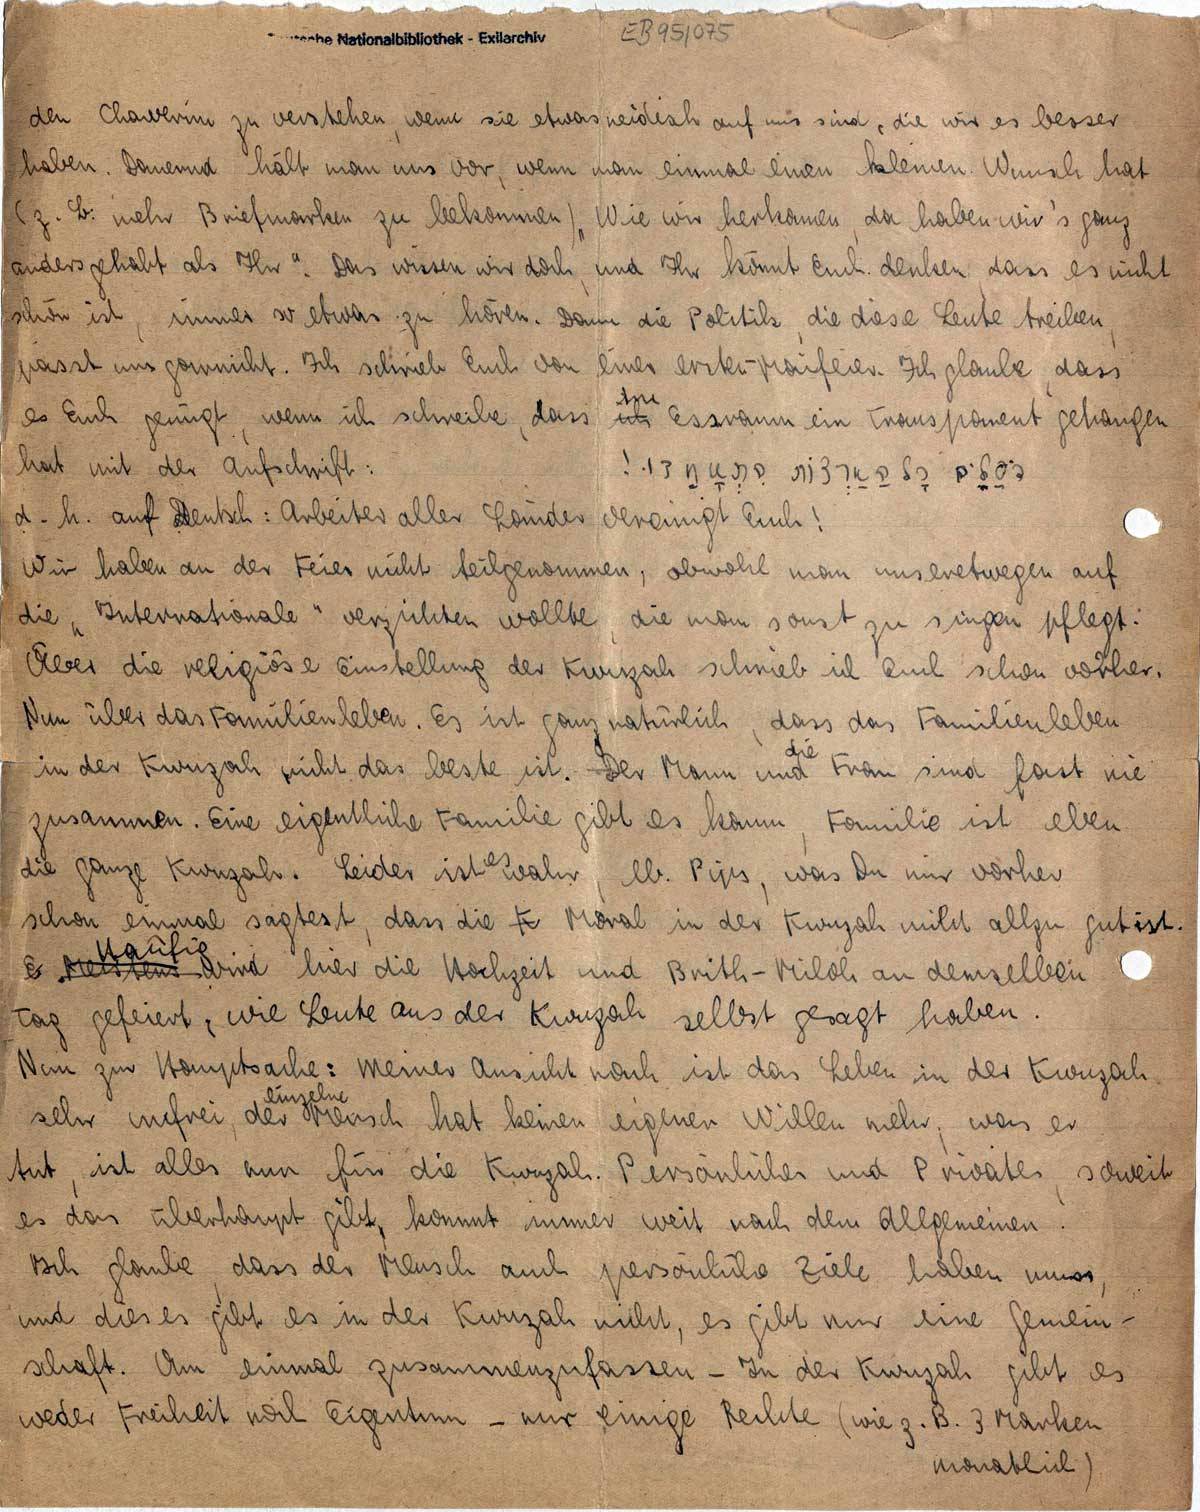 Deutsche Nationalbibliothek - Exilarchiv
EB 95/075
den Chawerim zu verstehen, wenn sie etwas neidisch auf uns sind, die wir es besser
haben. Dauernd hält man uns vor, wenn man einmal einen kleinen Wunsch hat
(z. B: mehr Briefmarken zu bekommen) „Wie wir herkamen, da haben wir's ganz
anders gehabt als Ihr“. Das wissen wir doch, und Ihr könnt Euch denken, dass es nicht
schön ist, immer so etwas zu hören. Dann die Politik, die diese Leute treiben,
passt uns garnicht. Ich schrieb Euch von einer ersten-Maifeier. Ich glaube, dass
es Euch genügt, wenn ich schreibe, dass im Essraum ein Transparent gehangen
hat mit der Aufschrift:
פּוֹעֲלִים כָּל הָאֲרָצוֹת הִתְאַחֲדוּ!
d. h. auf Deutsch: Arbeiter aller Länder vereinigt Euch!
Wir haben an der Feier nicht teilgenommen, obwohl man unseretwegen auf
die „Internationale“ verzichten wollte, die man sonst zu singen pflegt.
Über die religiöse Einstellung der Kwuzah schrieb ich Euch schon vorher.
Nun über das Familienleben. Es ist ganz natürlich, dass das Familienleben
in der Kwuzah nicht das beste ist. Der Mann und die Frau sind fast nie
zusammen. Eine eigentliche Familie gibt es kaum, Familie ist eben
die ganze Kwuzah. Leider ist es wahr, lb. Pips, was Du mir vorher
schon einmal sagtest, dass die Moral in der Kwuzah nicht allzu gut ist.
Häufig wird hier die Hochzeit und Brith-Miloh an demselben
Tag gefeiert, wie Leute aus der Kwuzah selbst gesagt haben.
Nun zur Hauptsache: Meiner Ansicht nach ist das Leben in der Kwuzah
sehr unfrei, der einzelne Mensch hat keinen eigenen Willen mehr, was er
tut, ist alles nur für die Kwuzah. Persönliches und Privates, soweit
es das überhaupt gibt, kommt immer weit nach dem Allgemeinen.
Ich glaube, dass der Mensch auch persönliche Ziele haben muss,
und dieses gibt es in der Kwuzah nicht, es gibt nur eine Gemein-
schaft. Um einmal zusammenzufassen - In der Kwuzah gibt es
weder Freiheit noch Eigentum - nur einige Rechte (wie z. B. 3 Marken
monatlich)